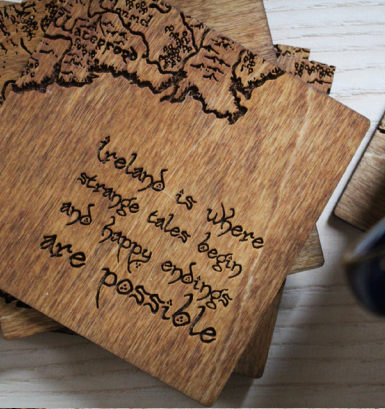 ireland is where
strange tales begin
and happy endings
are possible